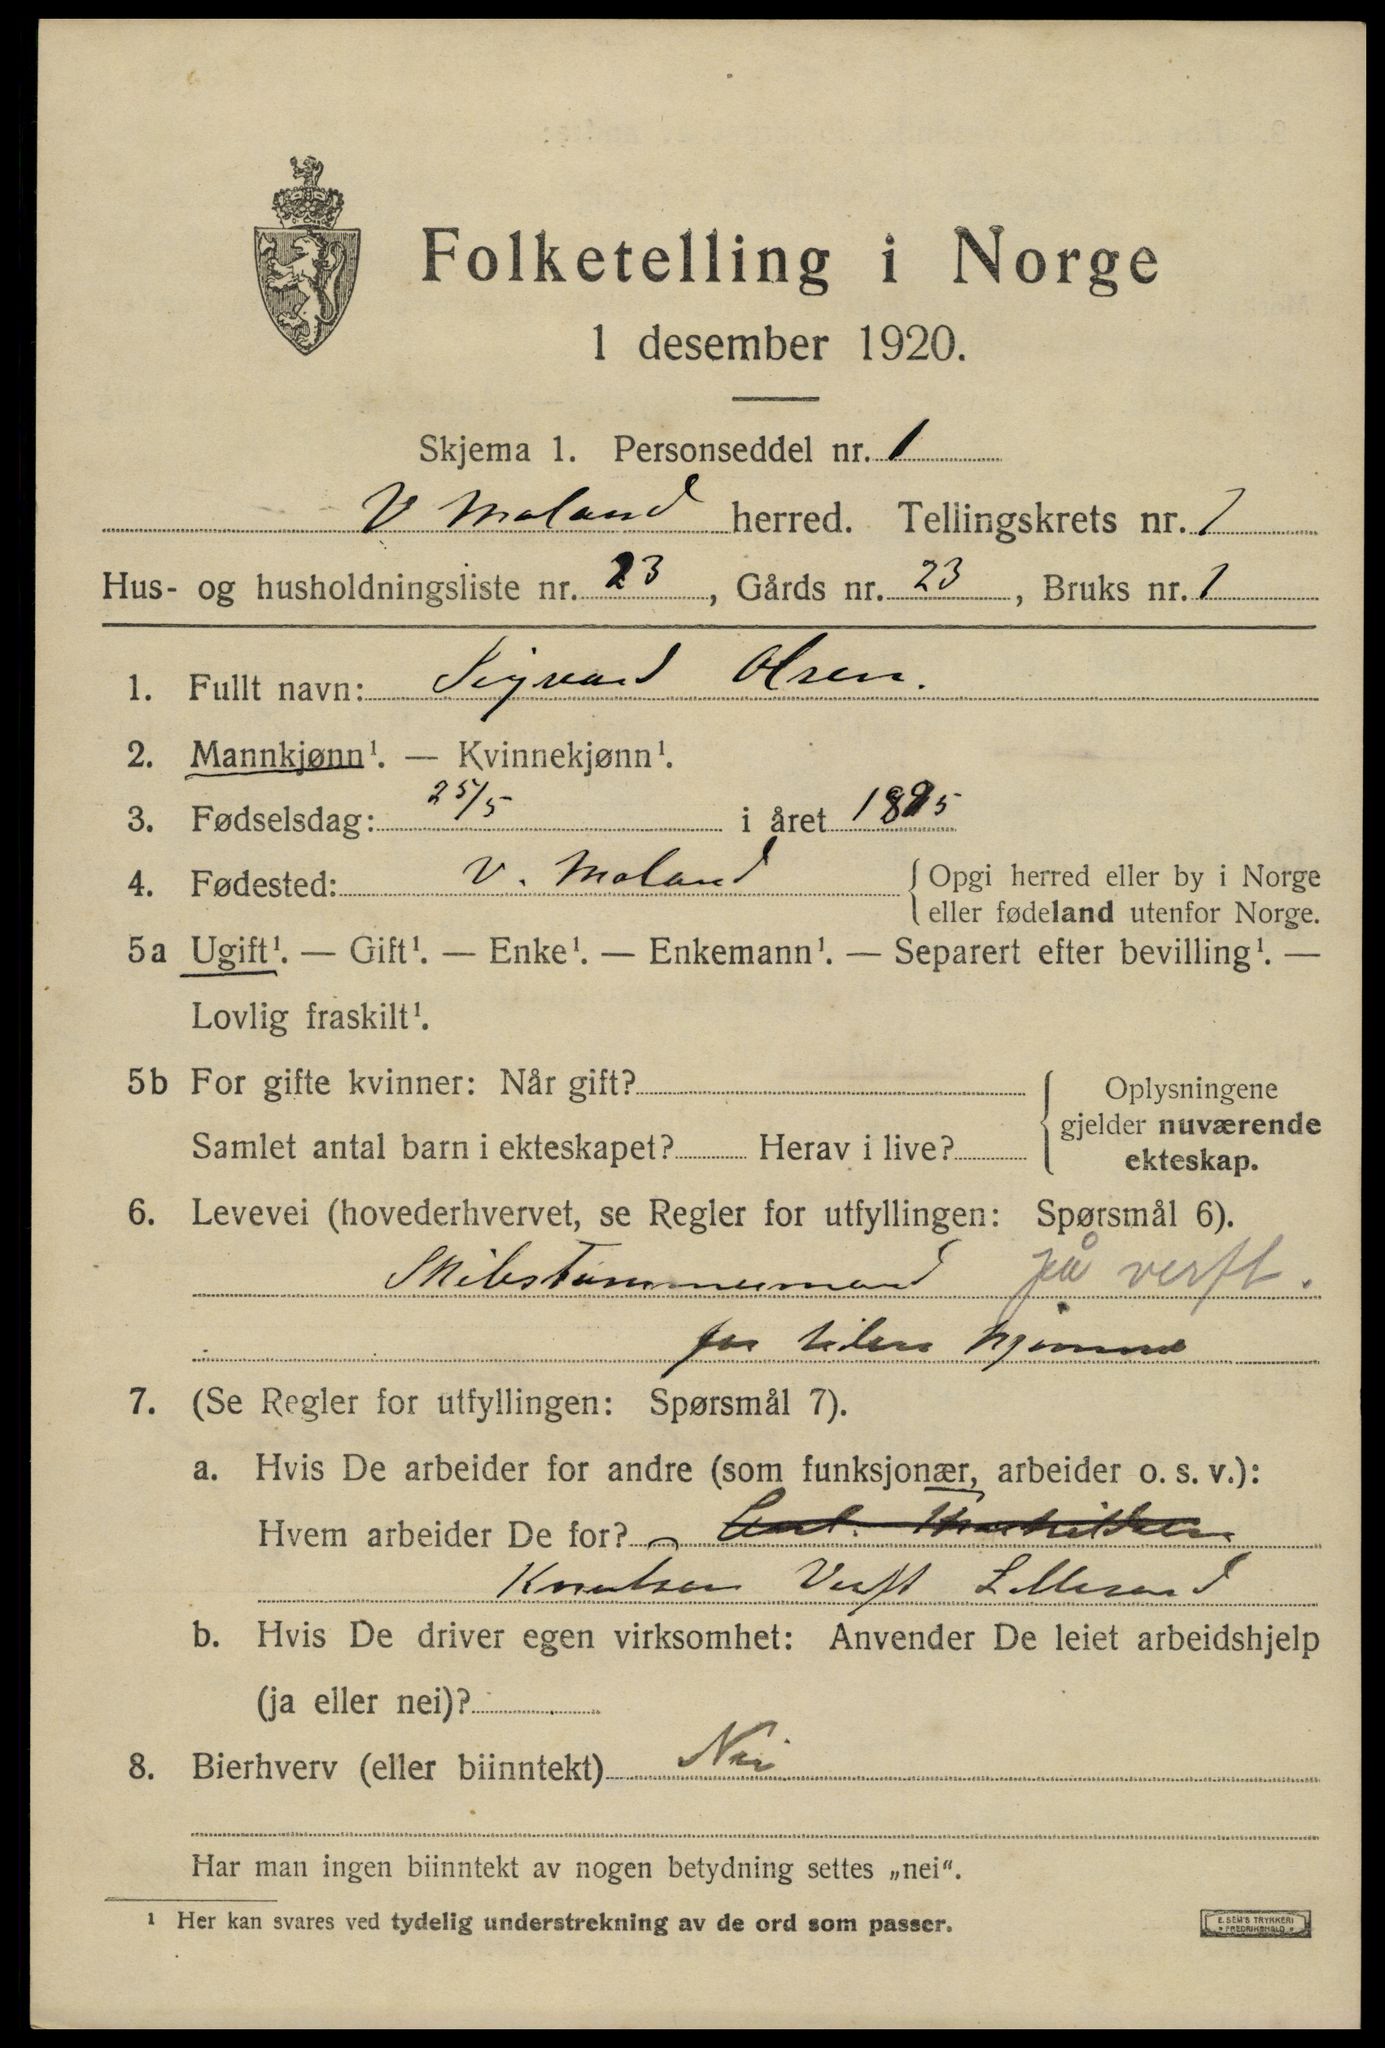 Folketelling i Norge
1 desember 1920.
Skjema 1. Personseddel nr. 1
V Moland herred. Tellingskrets nr. 1
Hus- og husholdningsliste nr. 23, Gårds nr. 23, Bruks nr. 1
1. Fullt navn: Sigvard Olsen.
2. Mannkjønn¹. — Kvinnekjønn¹.
3. Fødselsdag: 25/5 i året 1895
4. Fødested: V. Moland {Opgi herred eller by i Norge
eller fødeland utenfor Norge.
5a Ugift¹. — Gift¹. — Enke¹. — Enkemann¹. — Separert efter bevilling¹. —
Lovlig fraskilt¹.
5b For gifte kvinner: Når gift? {Oplysningene
gjelder nuværende
Samlet antal barn i ekteskapet? Herav i live?
ekteskap.
6. Levevei (hovederhvervet, se Regler for utfyllingen: Spørsmål 6).
Skibstømmermand på verft.
for tiden hjemme
7. (Se Regler for utfyllingen: Spørsmål 7).
a. Hvis De arbeider for andre (som funksjonær, arbeider o. s. v.):
Hvem arbeider De for?
Knutsen Verft Lillesand
b. Hvis De driver egen virksomhet: Anvender De leiet arbeidshjelp
(ja eller nei)?
8. Bierhverv (eller biinntekt) Nei
Har man ingen biinntekt av nogen betydning settes „nei“.
¹ Her kan svares ved tydelig understrekning av de ord som passer.
E. SEM'S TRYKKERI
FREDRIKSHALD